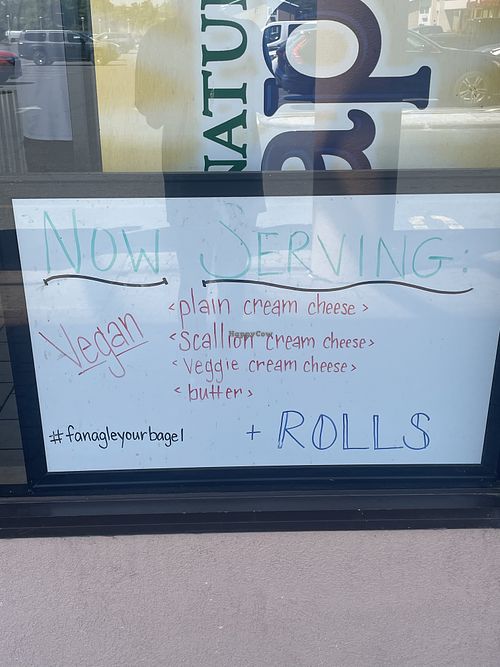 NATU
Now Serving:
Vegan
<plain cream cheese>
<scallion cream cheese>
<veggie cream cheese>
<butter>
#fanagleyourbagel
+ ROLLS
HappyCow